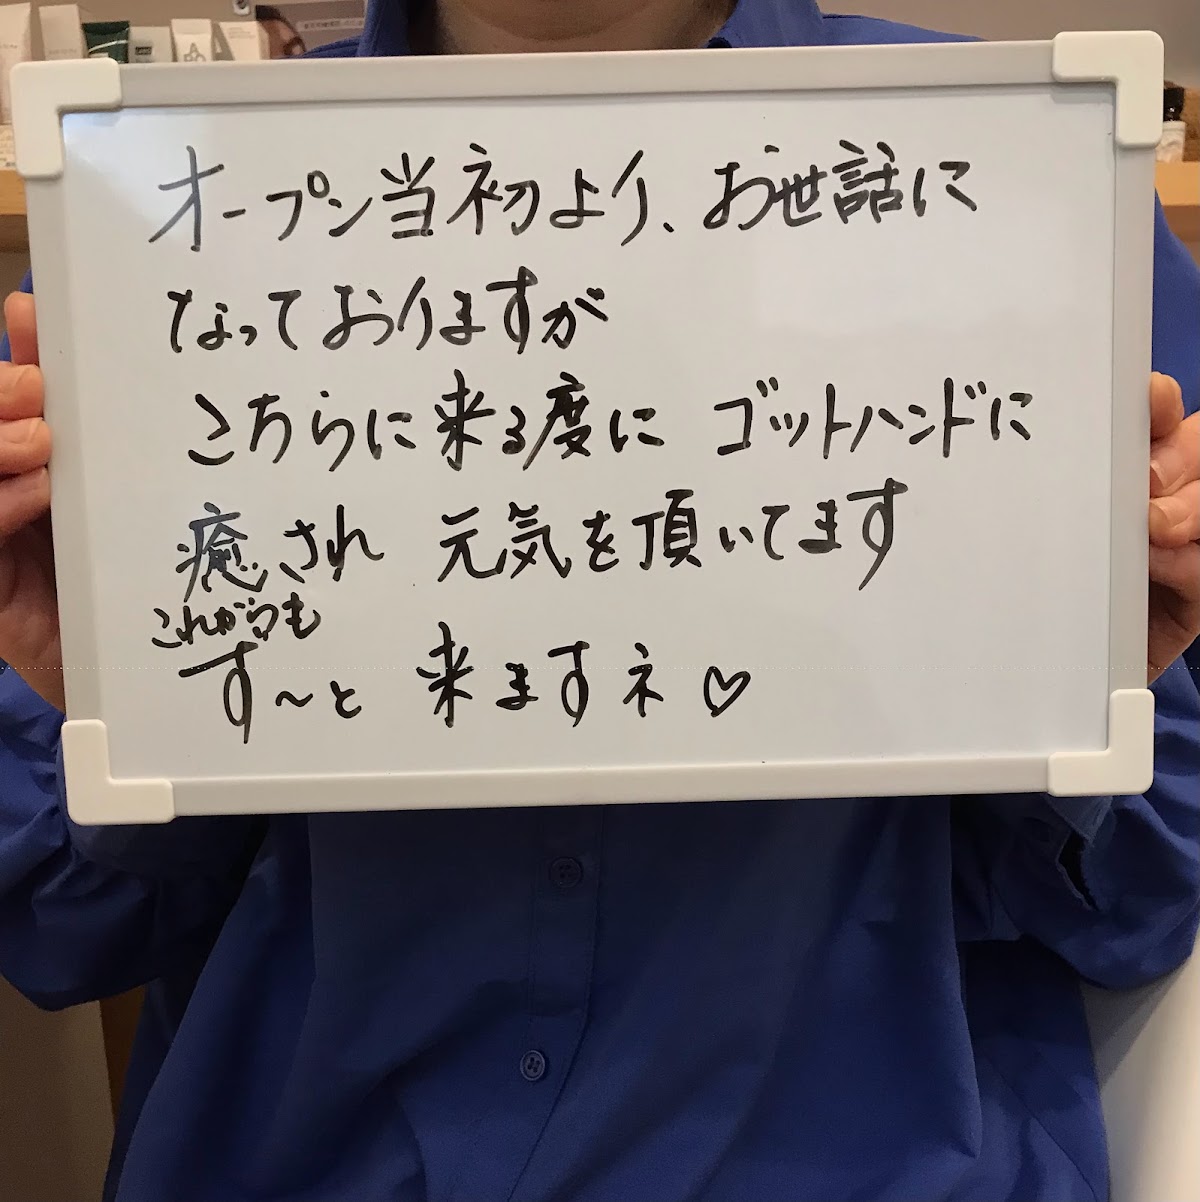 オープン当初より、お世話に
なっておりますが
こちらに来る度に ゴットハンドに
癒され 元気を頂いてます
これからも
す〜と 来ますネ♡